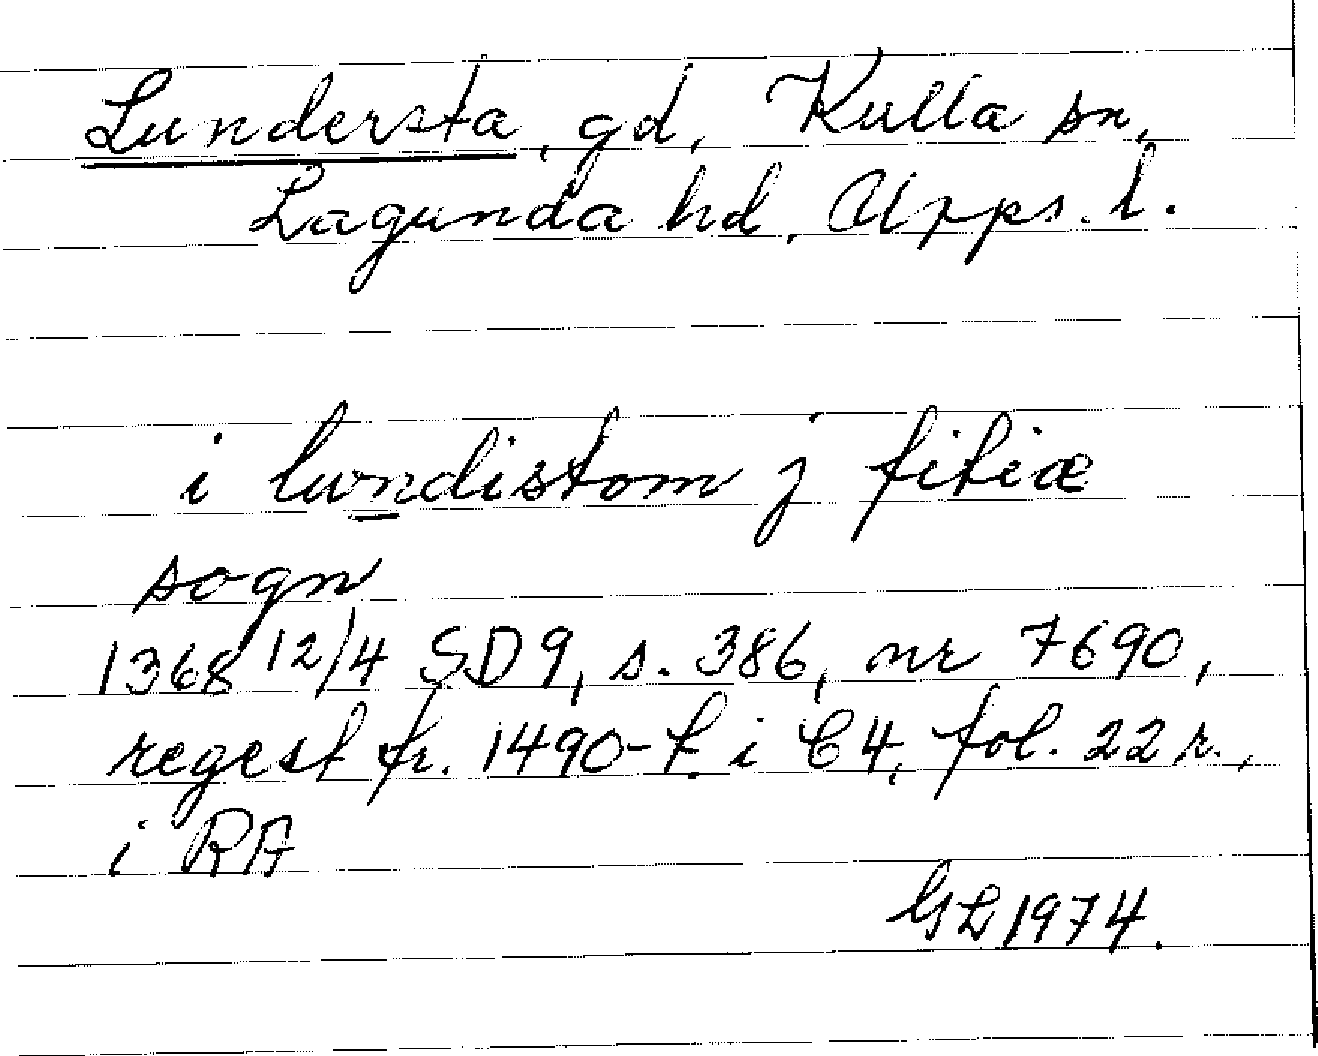 Lundersta, gd, Kulla sn,
Lagunda hd, Upps. l.
i lundistom j fitiæ
sogn
1368 12/4 SD9, s. 386, nr 7690,
regest fr. 1490-t. i C4, fol. 22 r.,
i RA
GL 1974.